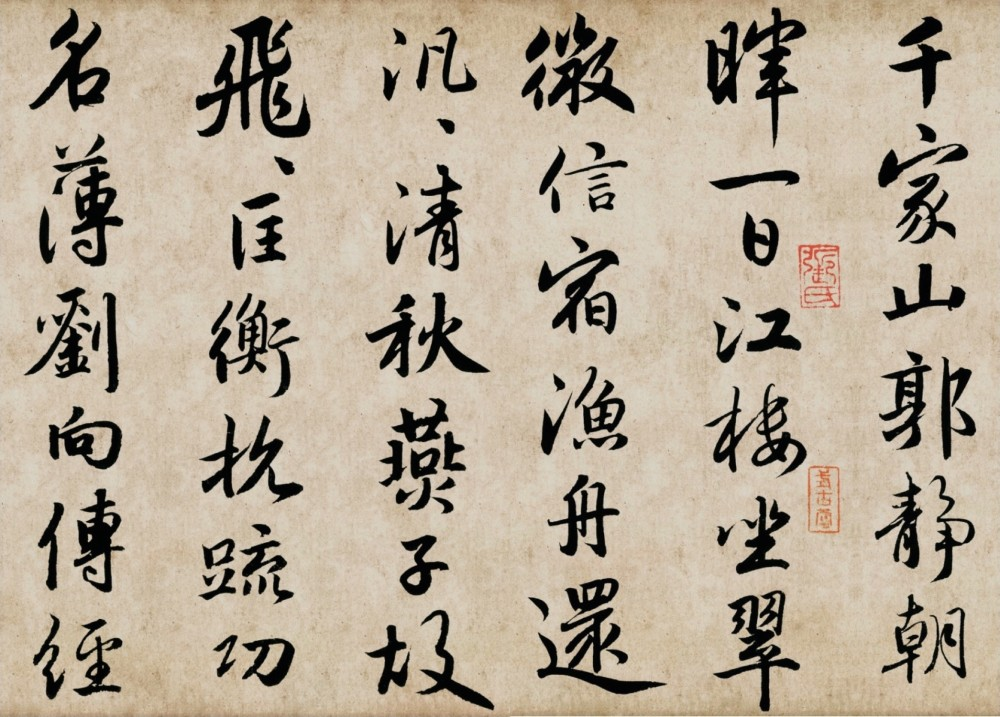 千家山郭静朝
暉一日江樓坐翠
微信宿漁舟還
汎、清秋燕子故
飛、匡衡抗疏功
名薄劉向傳經